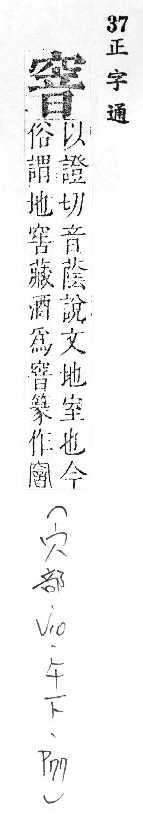 37正字通
窨
以證切音蔭說文地室也今
俗謂地窖藏酒爲窨篆作窨
(穴部·V10·午下·P77)